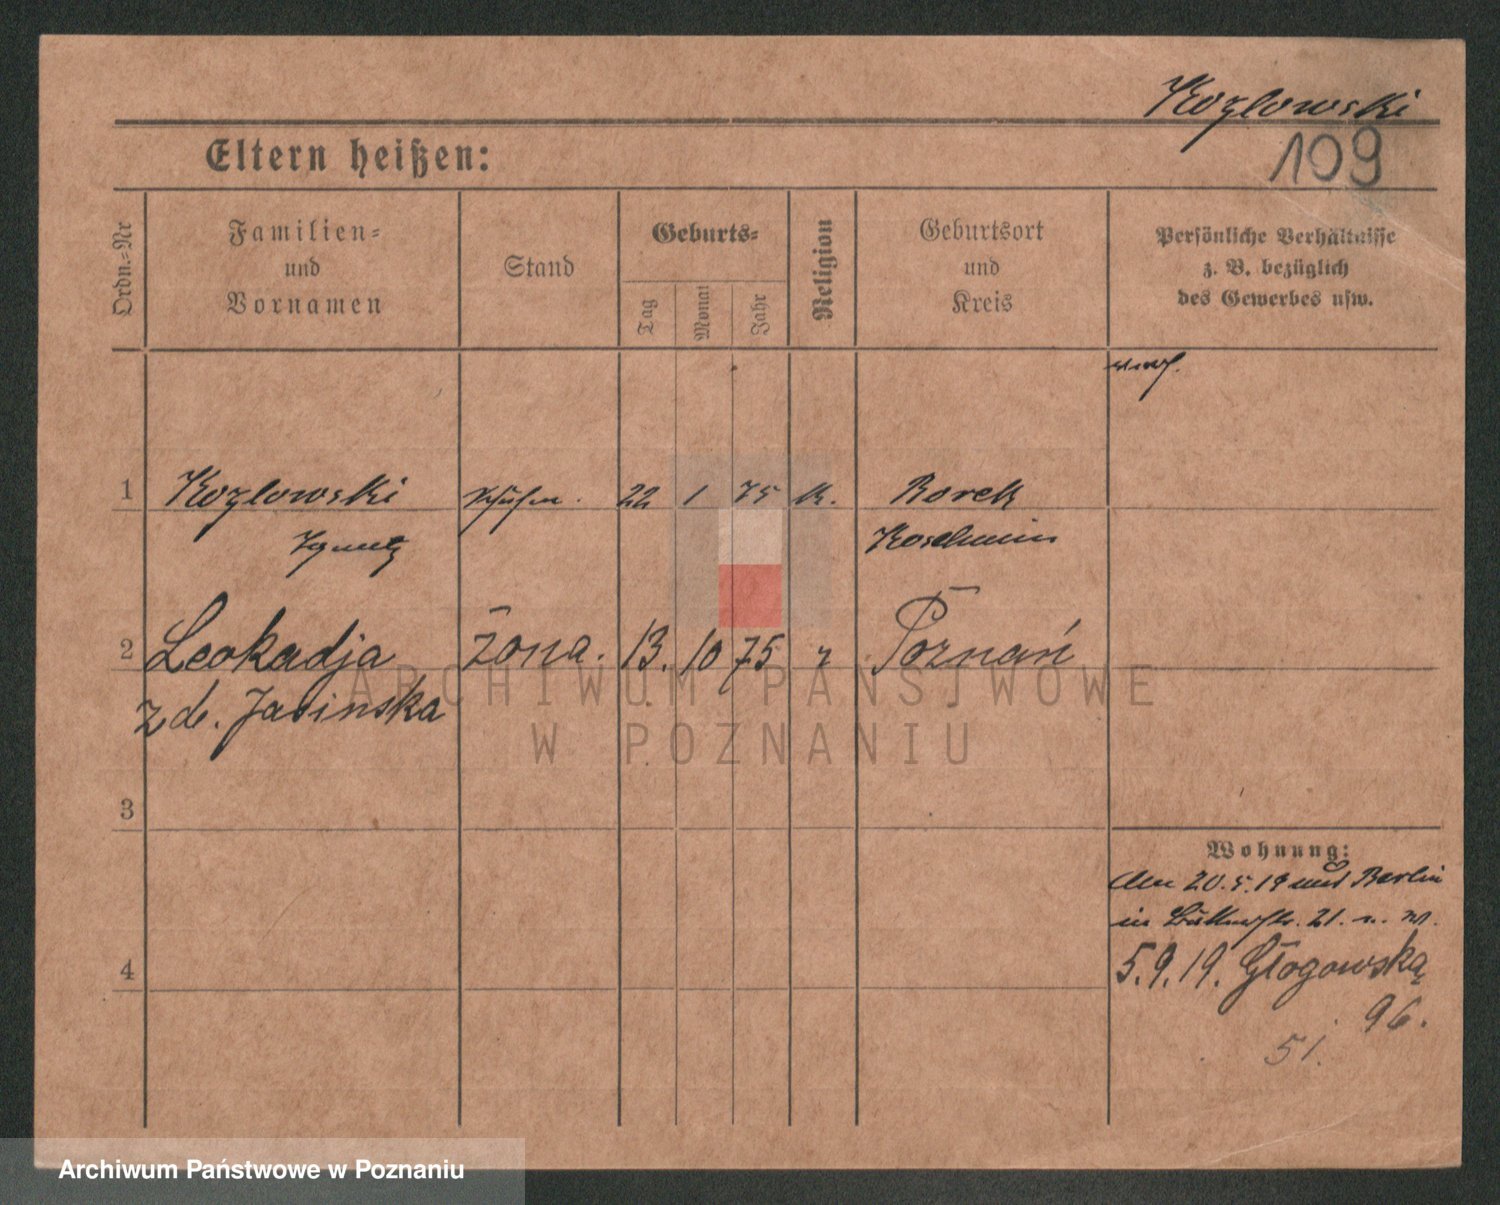 Kozlowski
109
Eltern heißen:
Ordn.-Nr
Familien-
und
Vornamen
Stand
Geburts-
Tag
Monat
Jahr
Religion
Geburtsort
und
Kreis
Persönliche Verhältnisse
z. B. bezüglich
des Gewerbes usw.
1 Kozlowski 22 1 75 k. Borek
Ignatz Koschmin
2 Leokadja żona. 13. 10 75 r Poznań
z d. Jasinska
3
4
Wohnung:
Am 20.5.19 aus Berlin
in 21.
5.9.19. Głogowską
96.
51.
ARCHIWUM PAŃSTWOWE
W POZNANIU
Archiwum Państwowe w Poznaniu